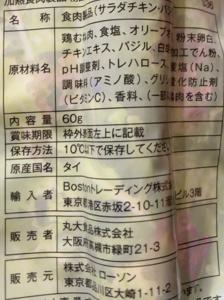 加熱食肉製品
名称 食肉製品(サラダチキン・バジ
原材料名 鶏むね肉、食塩、オリーブオ 粉末卵白、
チキンエキス、バジル、白 加工でん粉、
pH調整剤、トレハロース、 塩(Na)、
調味料(アミノ酸)、グリシ 変化防止剤
(ビタミンC)、香料、(一部 鶏肉を含む)
内容量 60g
賞味期限 枠外表面左上に記載
保存方法 10℃以下で保存してください。
原産国名 タイ
輸入者 Bostonトレーディング株式会
東京都港区赤坂2-10-11 ビル3階
販売者 丸大食品株式会社
大阪府高槻市緑町21-3
販売元 株式会社 ローソン
東京都品川区大崎1-11-2